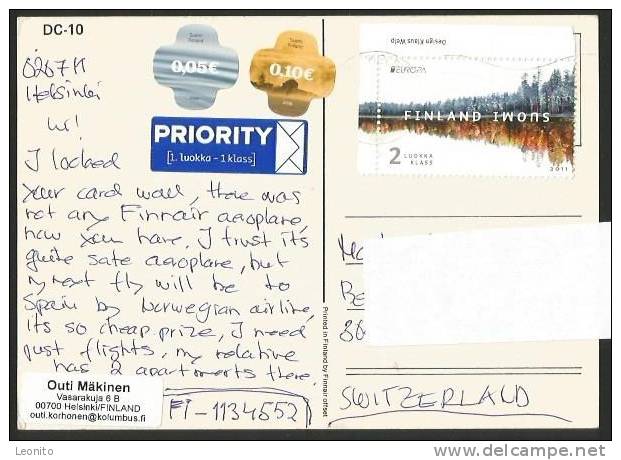 DC-10
Helsinki
Hi!
I looked
your card wall, there was
not any Finnair aeroplane,
now you have. I trust it's
quite safe aeroplane, but
my next fly will be to
Spain by Norwegian airline,
its so cheap prize, I need
just flights, my relative
has 2 apartments there.
Outi Mäkinen
Vasarakuja 6 B
00700 Helsinki/FINLAND
outi.korhonen@kolumbus.fi
FI-1134552
Suomi
Finland
0,05€
Suomi
Finland
0,10€
PRIORITY
[1. luokka - 1 klass]
Design Klaus Welp
EUROPA
FINLAND SUOMI
2 LUOKKA
KLASS
2011
Printed in Finland by Finnair offset
SWITZERLAND
delcampe.net